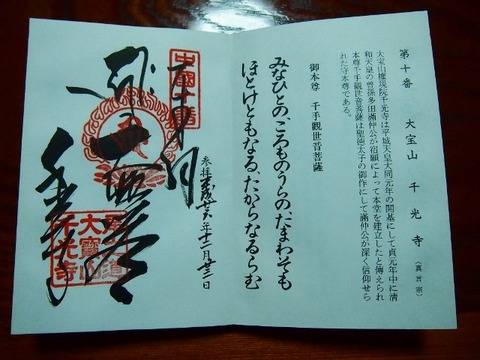 第十番　大宝山　千光寺（真言宗）
大宝山権現院千光寺は平城天皇大同元年の開基にして貞元年中に清
和天皇の曾孫多田満仲公が宿願によって本堂を建立したと伝えられ
本尊千手観世音菩薩は聖徳太子の御作にして満仲公が深く信仰せら
れた守本尊である。
御本尊　千手観世音菩薩
みなひとのころものうらのたまわそも
ほとけともなるたからなるらむ
参拝平成廿六年十二月
中國
千光寺
尾道
大寶山
千光寺